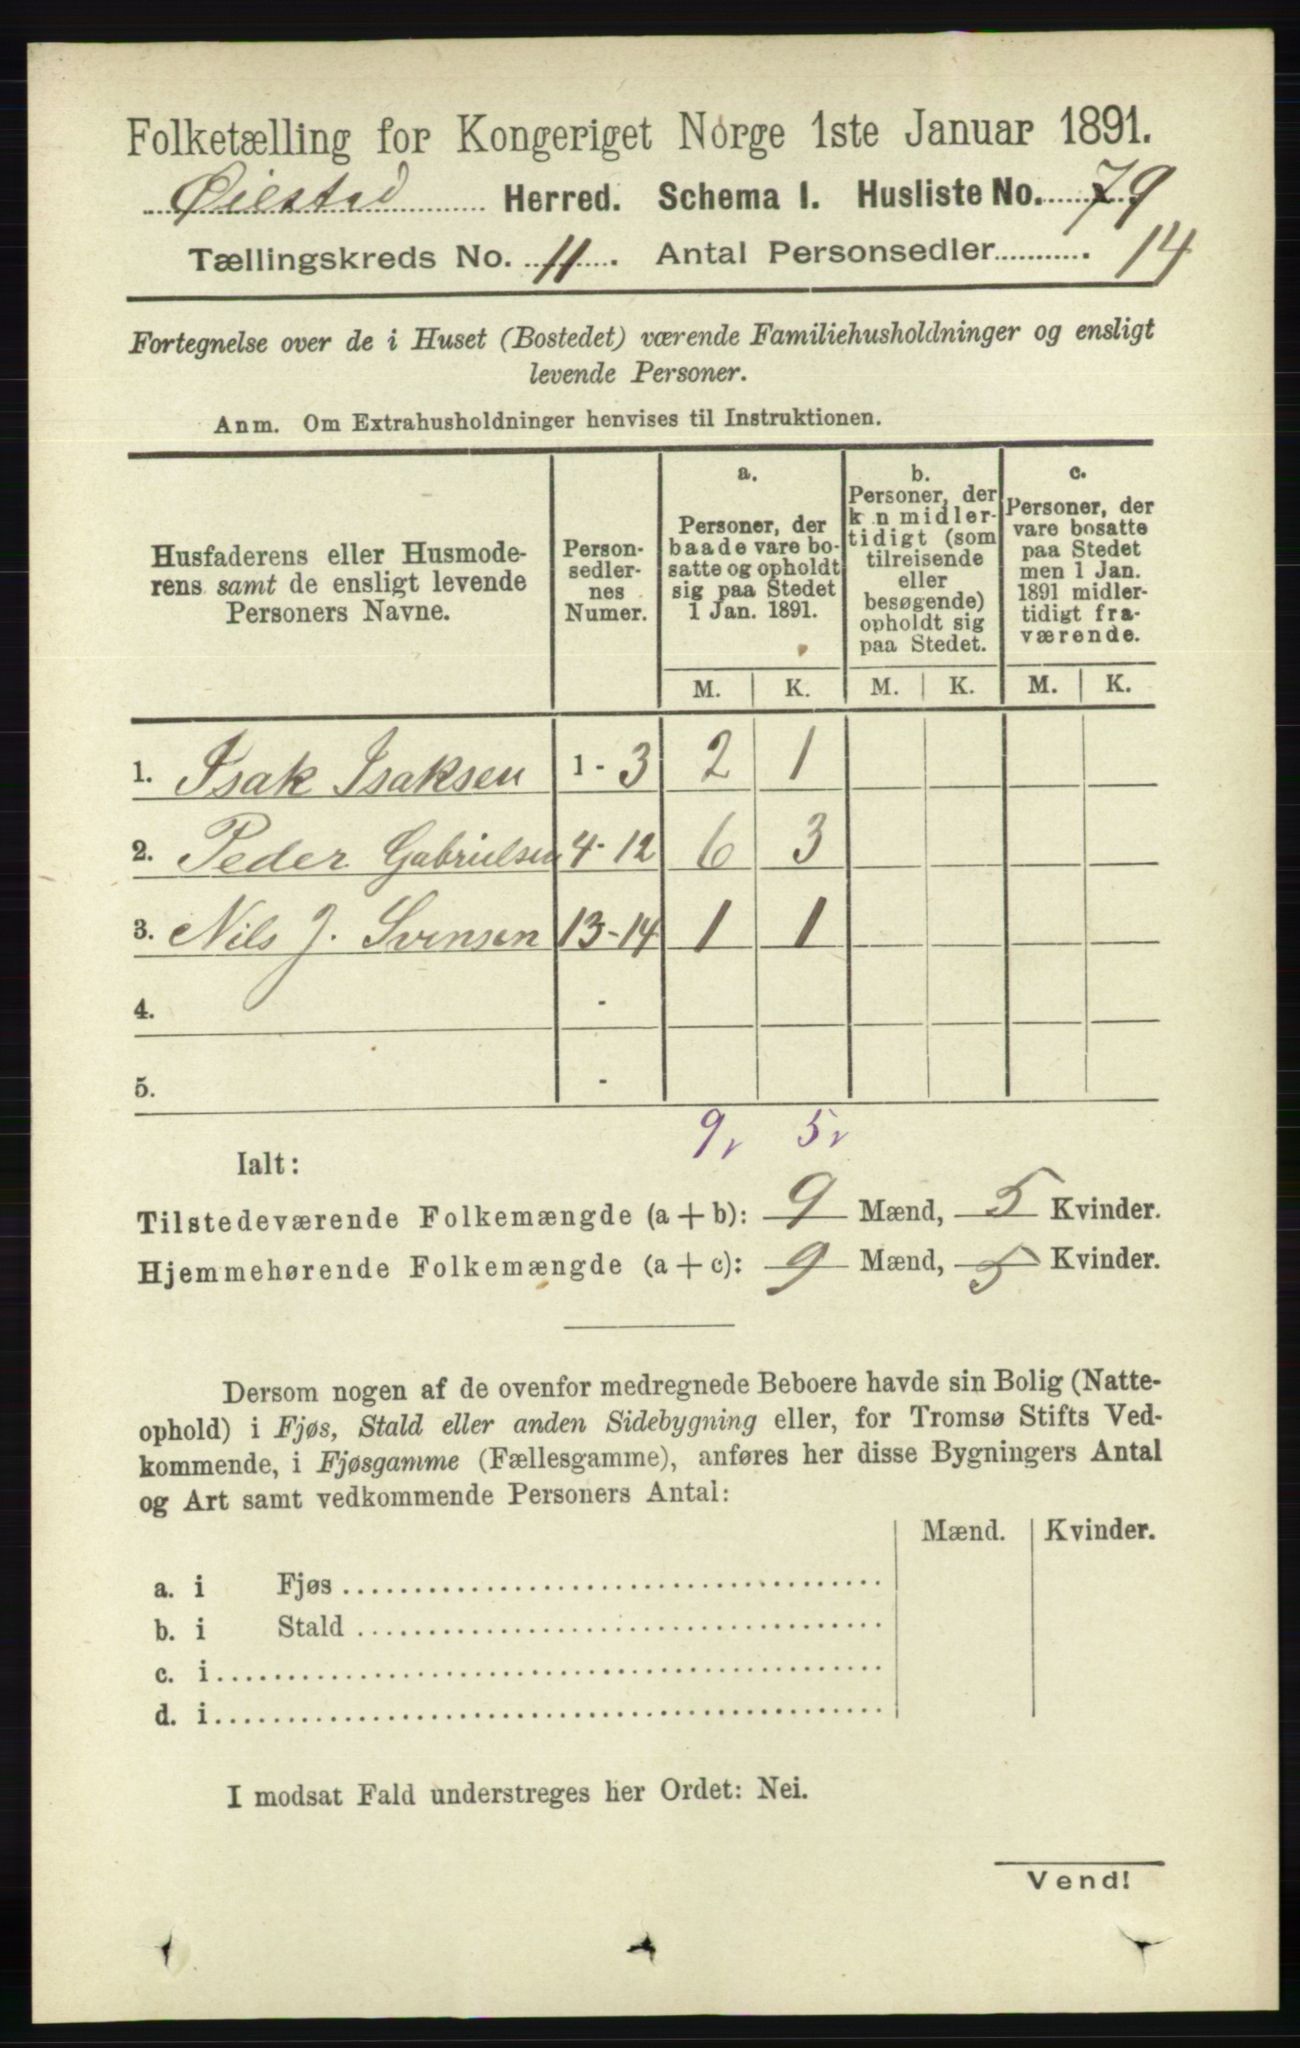 Folketælling for Kongeriget Norge 1ste Januar 1891.
Øiestad Herred. Schema I. Husliste No. 79
Tællingskreds No. 11. Antal Personsedler 14
Fortegnelse over de i Huset (Bostedet) værende Familiehusholdninger og ensligt
levende Personer.
Anm. Om Extrahusholdninger henvises til Instruktionen.
Husfaderens eller Husmode-
rens samt de ensligt levende
Personers Navne.
Person-
sedler-
nes
Numer.
a.
Personer, der
baade vare bo-
satte og opholdt
sig paa Stedet
1 Jan. 1891.
b.
Personer, der
k n midler-
tidigt (som
tilreisende
eller
besøgende)
opholdt sig
paa Stedet.
c.
Personer, der
vare bosatte
paa Stedet
men 1 Jan.
1891 midler-
tidigt fra-
værende.
M. K. M. K. M. K.
1. Isak Isaksen 1 - 3 2 1
2. Peder Gabrielsen 4 - 12 6 3
3. Nils J. Svensen 13 - 14 1 1
4. -
5. -
9 5
Ialt:
Tilstedeværende Folkemængde (a + b): 9 Mænd, 5 Kvinder.
Hjemmehørende Folkemængde (a + c): 9 Mænd, 5 Kvinder.
Dersom nogen af de ovenfor medregnede Beboere havde sin Bolig (Natte-
ophold) i Fjøs, Stald eller anden Sidebygning eller, for Tromsø Stifts Ved-
kommende, i Fjøsgamme (Fællesgamme), anføres her disse Bygningers Antal
og Art samt vedkommende Personers Antal:
Mænd. Kvinder.
a. i Fjøs
b. i Stald
c. i
d. i
I modsat Fald understreges her Ordet: Nei.
Vend!